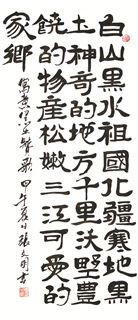 白山黑水祖國北疆寒地黑
土神奇的地方千里沃野豐
饒的物産松嫩三江可愛的
家鄉
甲午夏日張文書